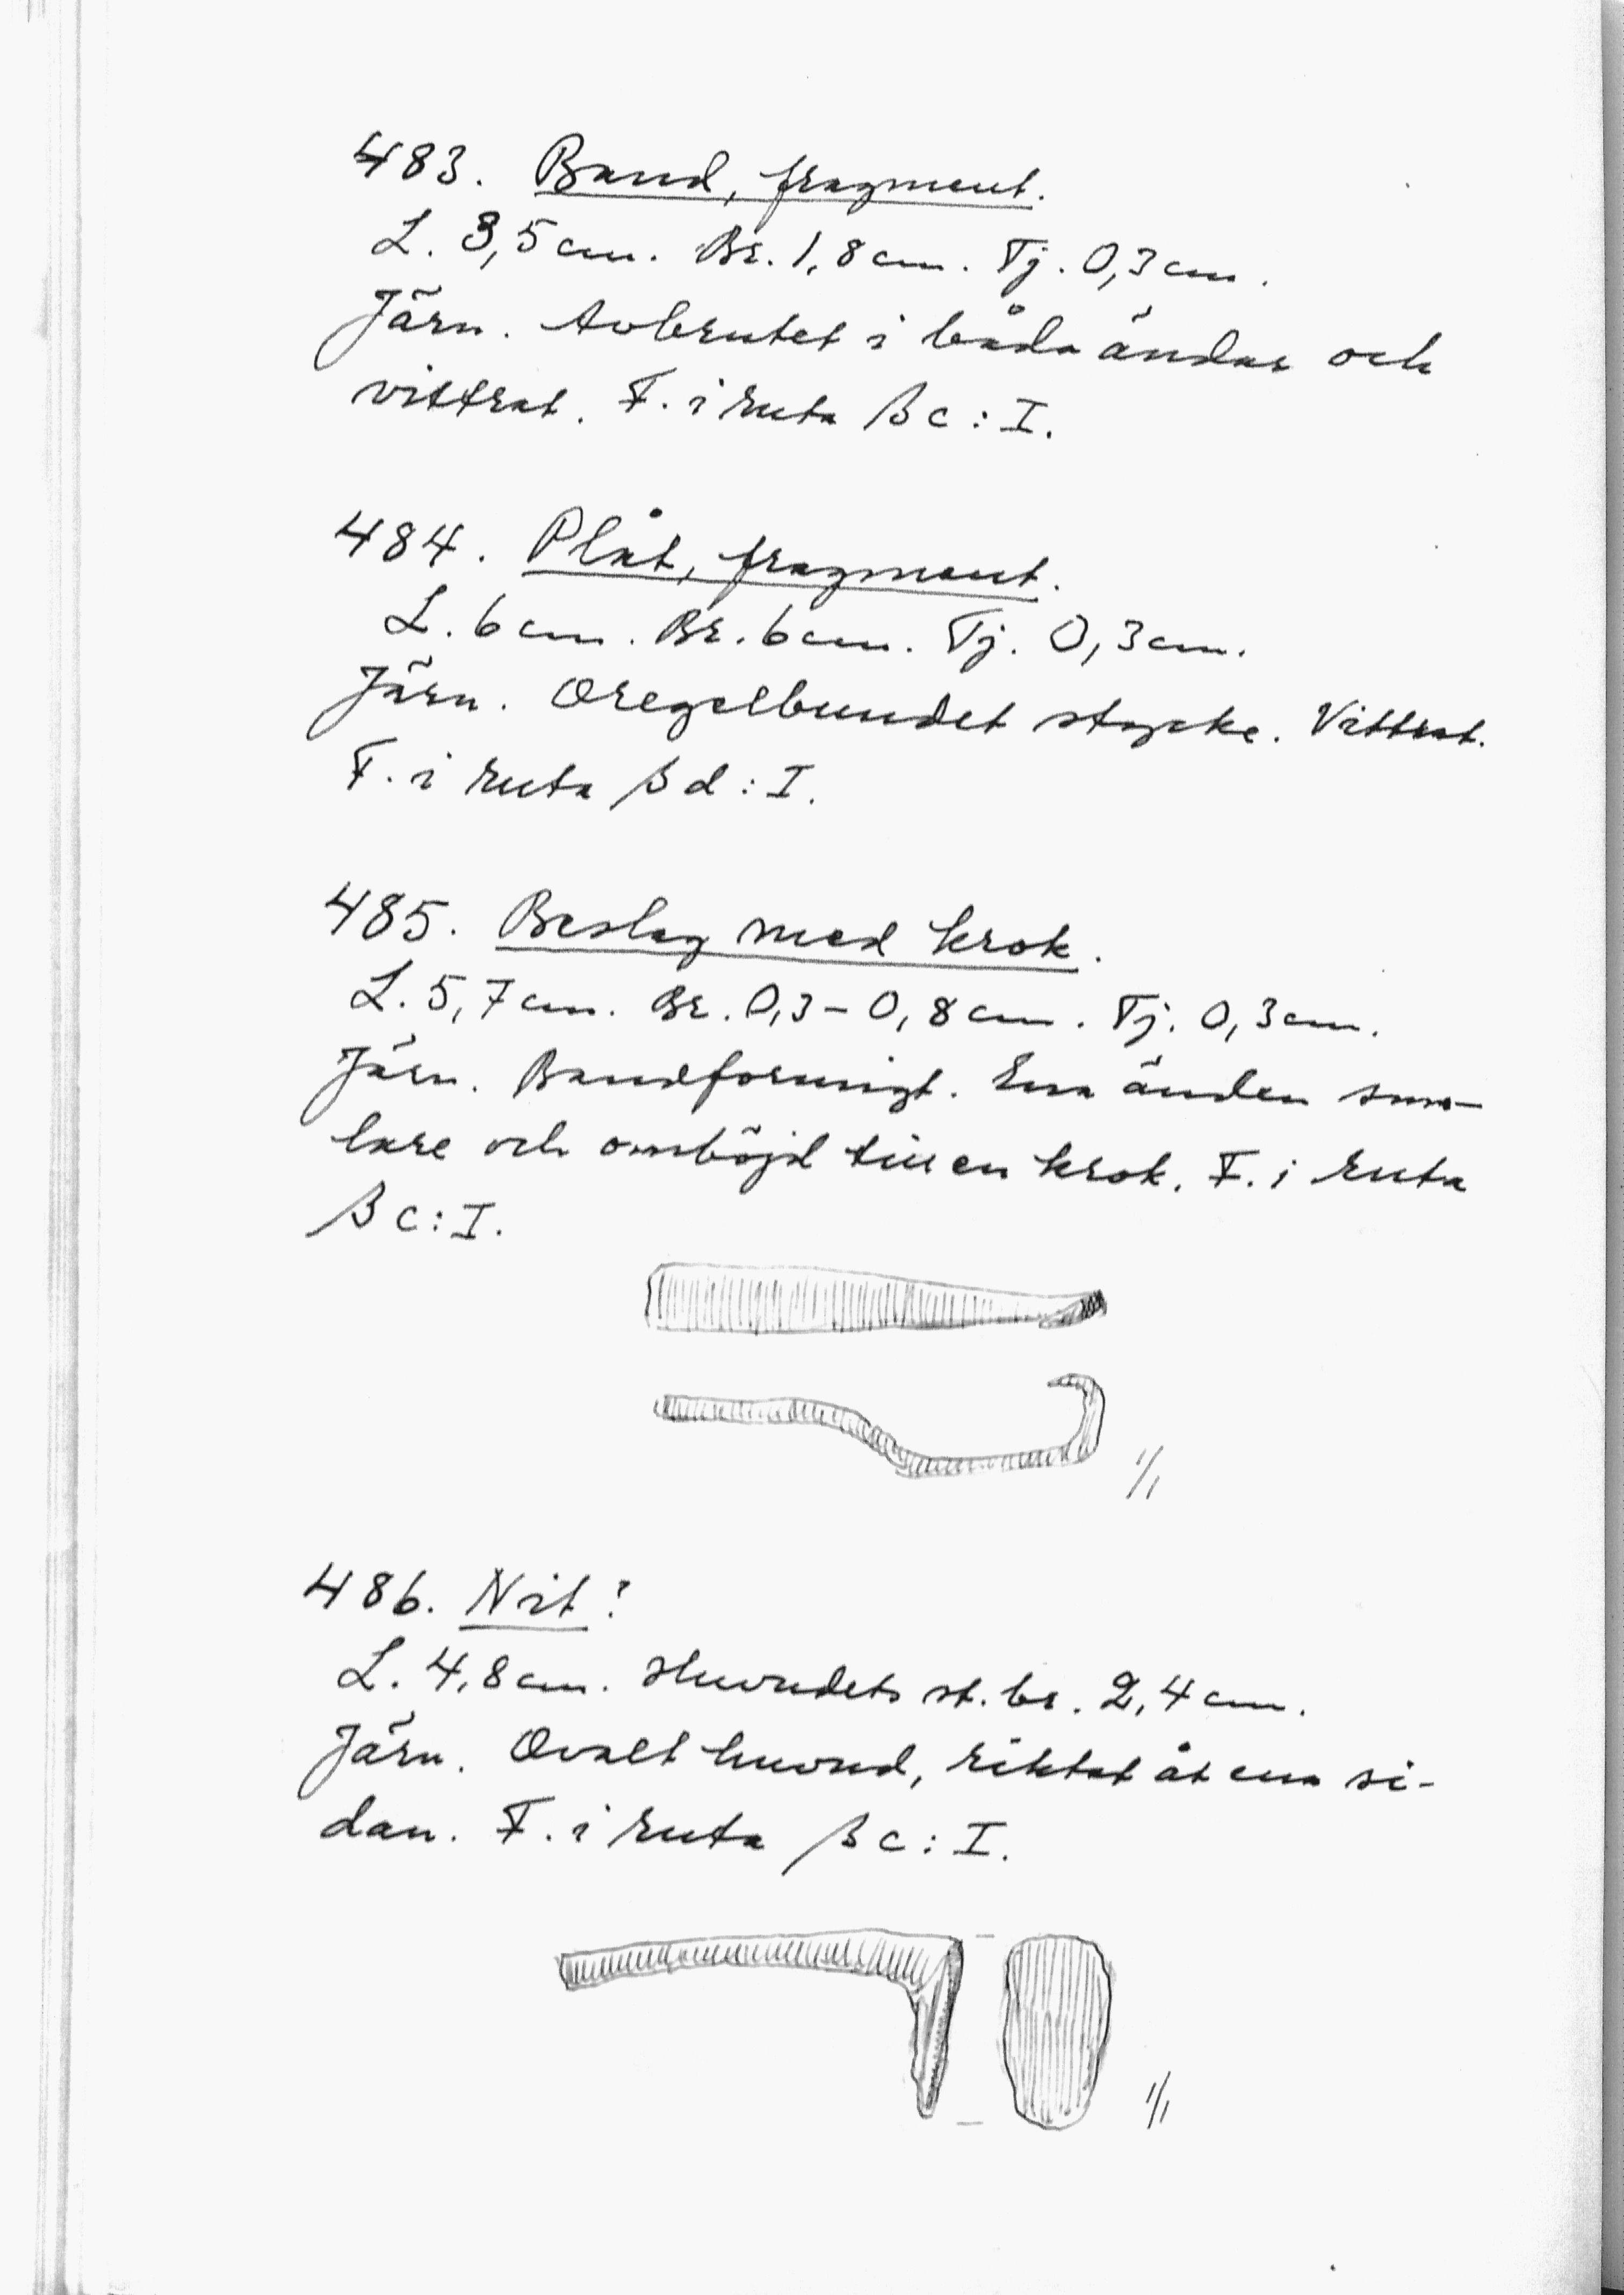 483. Band, fragment.
L. 3,5 cm. Br. 1,8 cm. Tj. 0,3 cm.
Järn. Avbrutet i båda ändar och
vittrat. F. i ruta β c : I.
484. Plåt, fragment.
L. 6 cm. Br. 6 cm. Tj. 0,3 cm.
Järn. Oregelbundet stycke. Vittrat.
F. i ruta β d : I.
485. Beslag med krok.
L. 5,7 cm. Br. 0,3 – 0,8 cm. Tj. 0,3 cm.
Järn. Bandformigt. Ena änden sma-
lare och omböjd till en krok. F. i ruta
β c : I.
1/1
486. Nit?
L. 4,8 cm. Huvudets st. br. 2,4 cm.
Järn. Ovalt huvud, riktat åt ena si-
dan. F. i ruta β c : I.
1/1